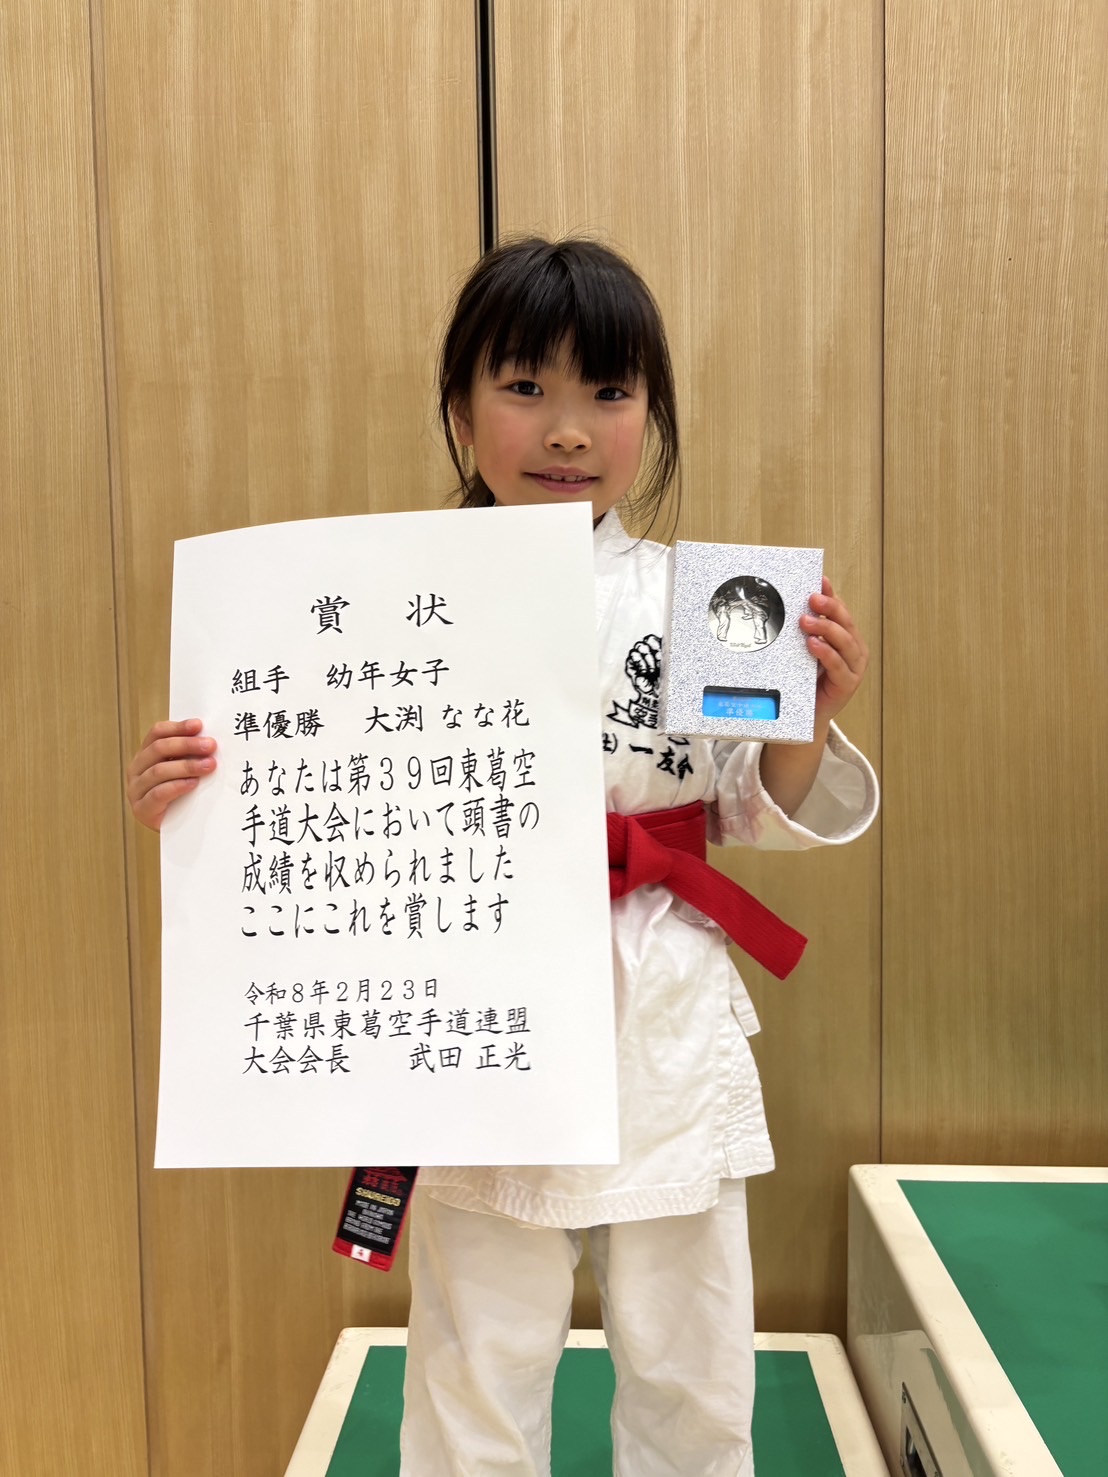 賞 状
組手 幼年女子
準優勝 大渕 なな花
あなたは第39回東葛空
手道大会において頭書の
成績を収められました
ここにこれを賞します
令和8年2月23日
千葉県東葛空手道連盟
大会会長 武田 正光
準優勝
一友会
SHUREIDO
4